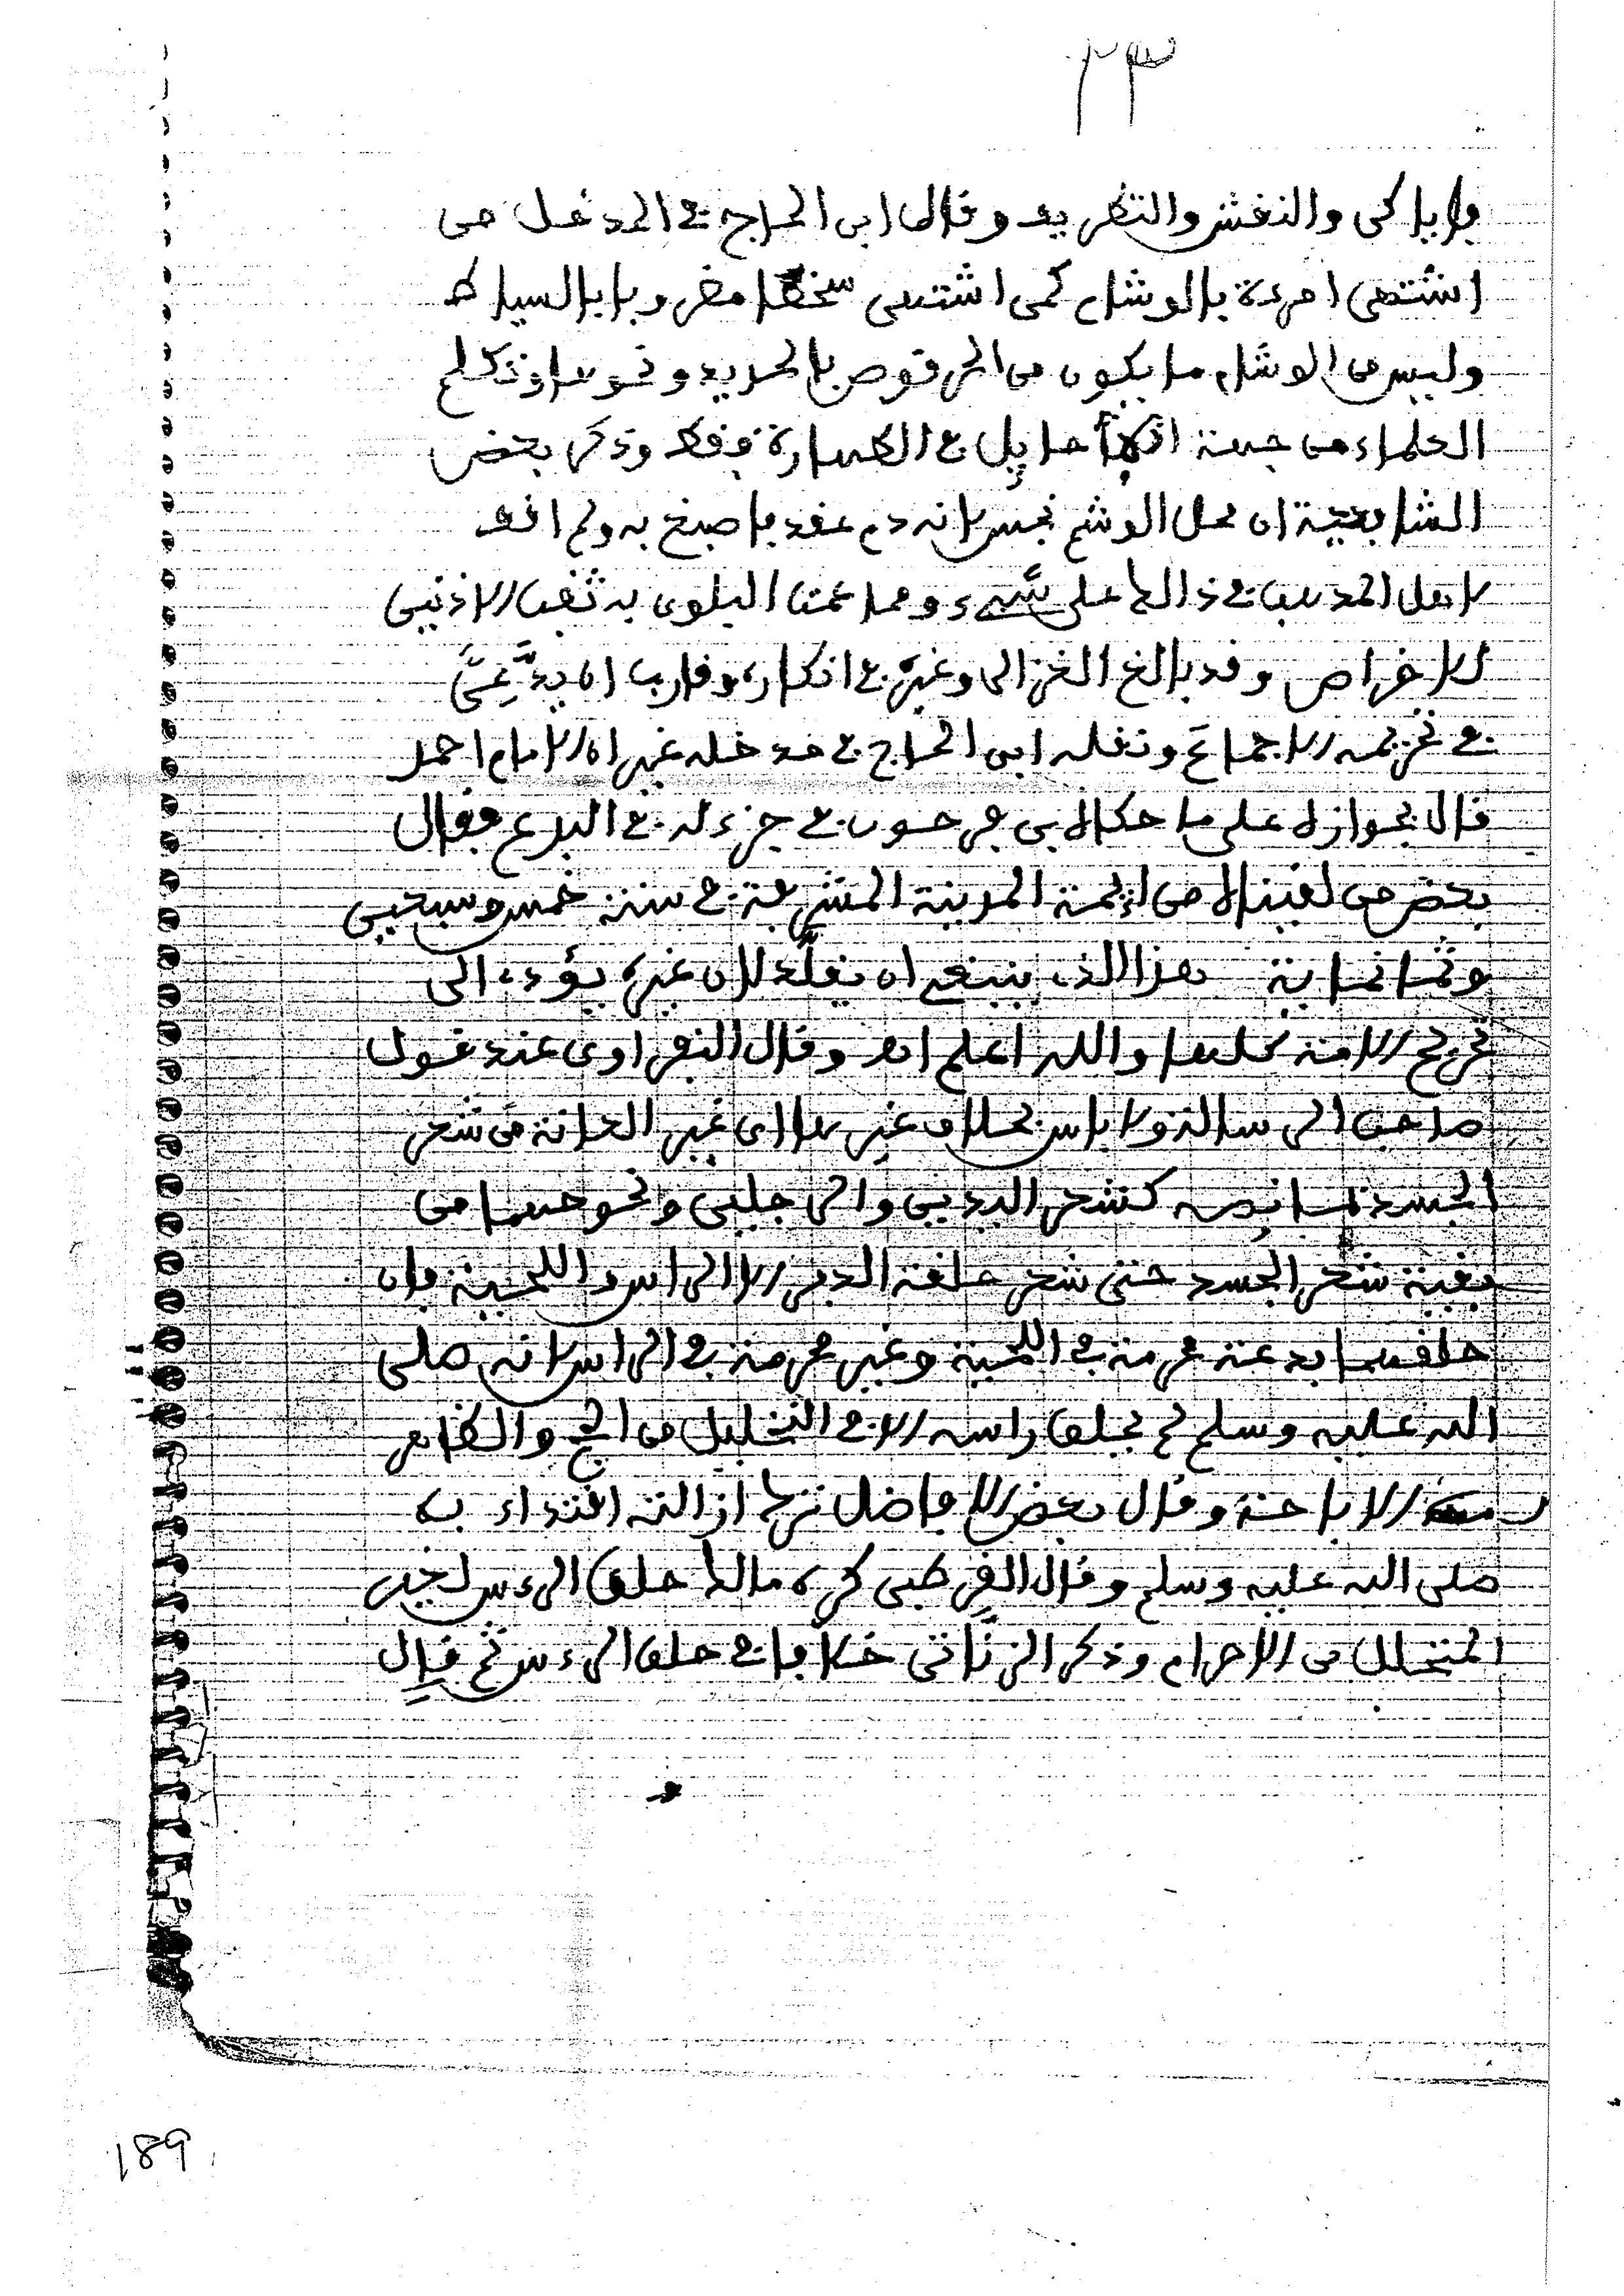 ٢٣
واياكى والنقش والتطريف وقال ابن الحاج في المدخل من
اشتهى امرءة بالوشام كمن اشتهى سخطا مضروبا بالسياط
وليس من الوشام ما يكون من المرقوم بالحديد ونحوه اوتكلم
العلماء من جهة انه حايل في الطهارة فقط وذكر بعض
الشافعية ان محل الوشم نجس لانه دم عقد بما صبغ به ولم اقف
لاهل المذهب في ذالك على شيء ومما عمت البلوى به ثقب الاذنين
للاخراص وقد بالغ الغزالي وغيره في انكاره وقارب ان يدَّعِيَ
في تحريمه الاجماع ونقله ابن الحاج في مدخله غير ان الامام احمد
قال بجوازه على ما حكاه ابن فرحون في جزء له في البدع فقال
بعض من لقيناه من ائمة المدينة المشرفة في سنة خمس وسبعين
وثمانماية هذا الذى ينبغي ان يقلَّد لان غيره يؤدى الى
تحريج الامة كلها والله اعلم اهـ وقال النفراوى عند قول
صاحب الرسالة ولا باس بحلاق غيرها اى غير العانة من شعر
الجسد ما نصه كشعر اليدين والرجلين ونحوهما من
بقية شعر الجسد حتى شعر حلقة الدبر الا الراس واللحية فان
حلقهما بدعة محرمة في اللحية وغير محرمة في الراس لانه صلى
الله عليه وسلم لم يحلق راسه الا في التحليل من الحج والظاهر
الاباحة وقال بعض الافاضل ترك ازالته اقتداء به
صلى الله عليه وسلم وقال القرطبي كره مالك حلق الرءس لغير
المتحلل من الاحرام وذكر الزناتي خلافا في حلق الرءس ثم قال
189